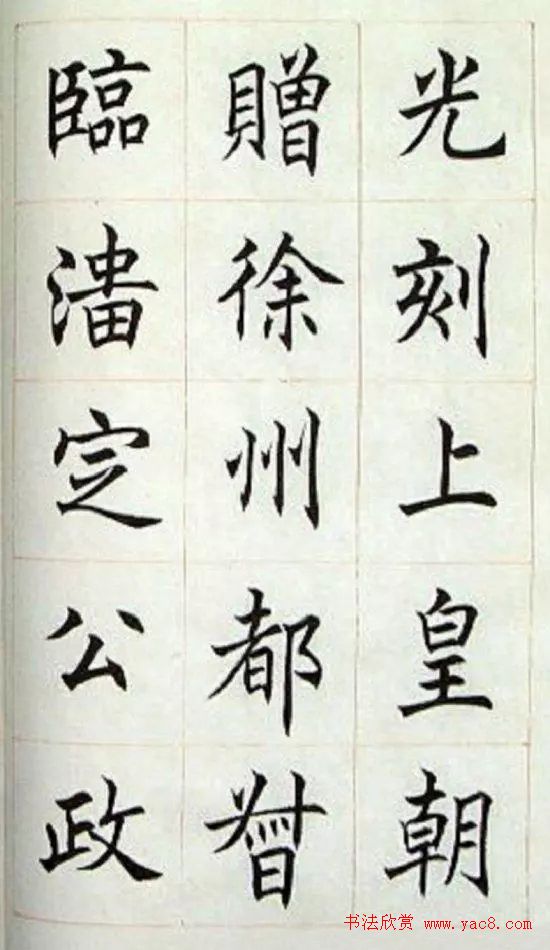 光刻上皇朝
贈徐州都督
臨淄定公政
书法欣赏 www.yac8.com